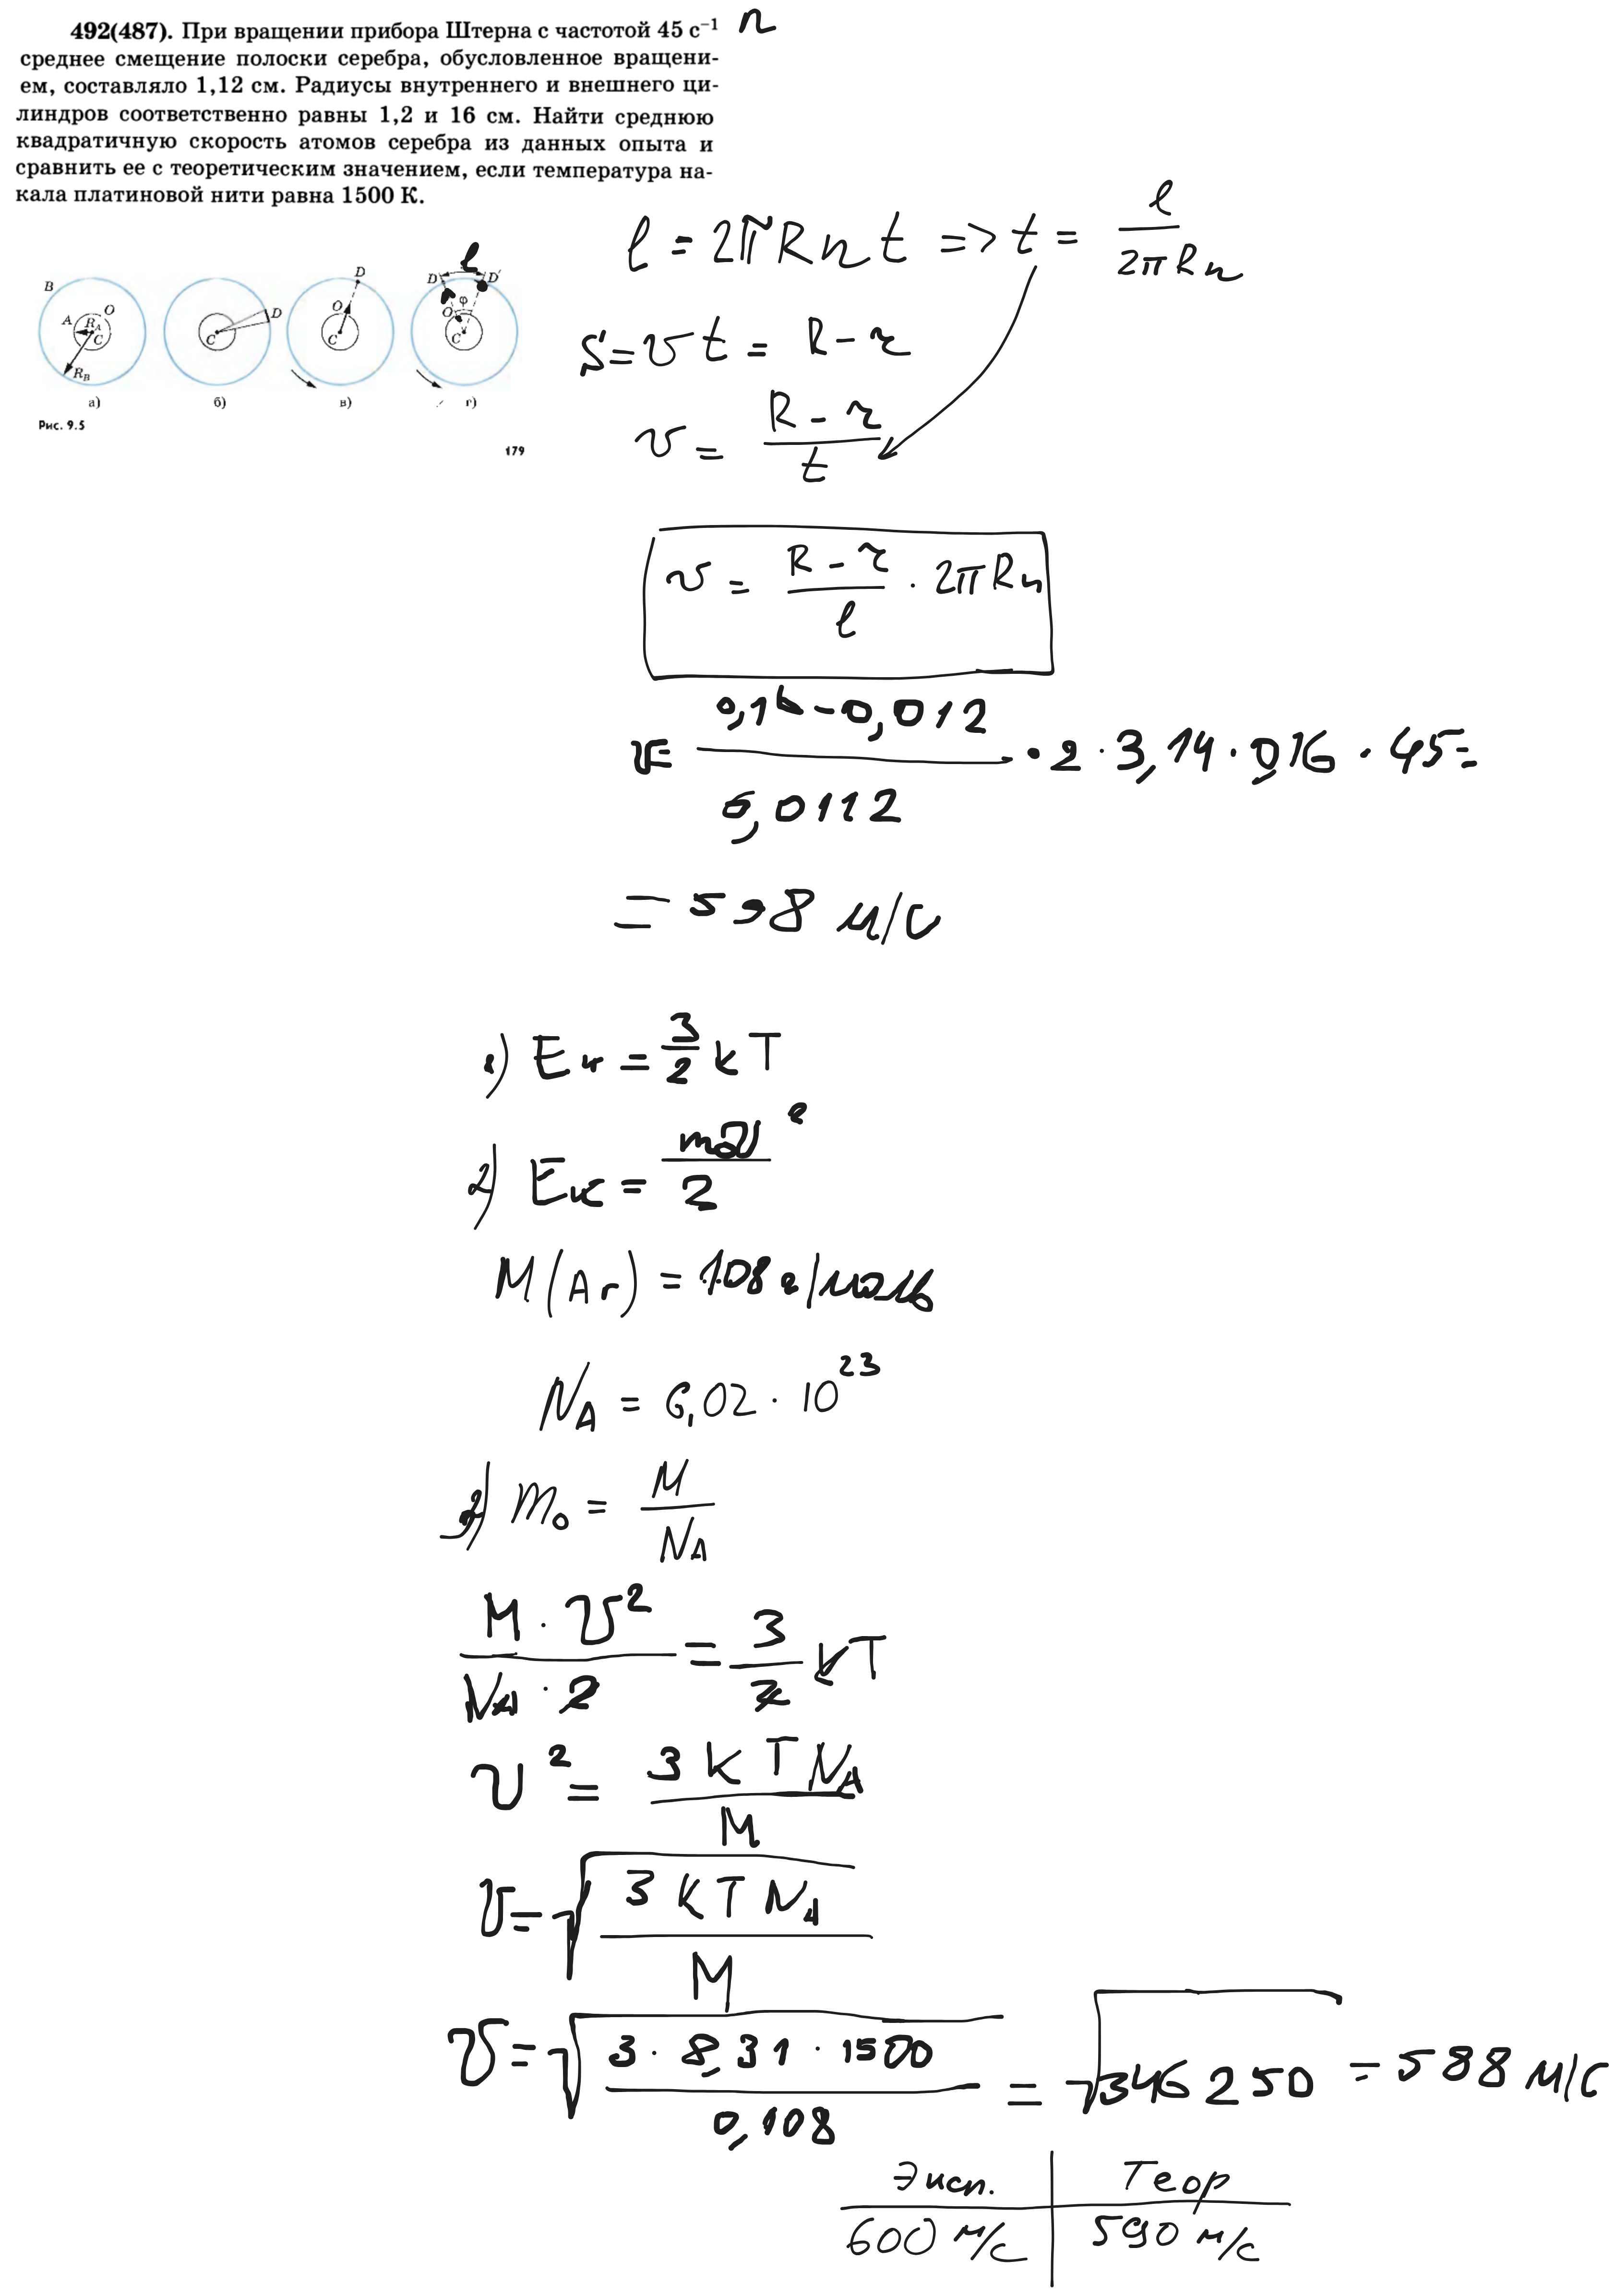 492(487). При вращении прибора Штерна с частотой 45 с⁻¹ n
среднее смещение полоски серебра, обусловленное вращени-
ем, составляло 1,12 см. Радиусы внутреннего и внешнего ци-
линдров соответственно равны 1,2 и 16 см. Найти среднюю
квадратичную скорость атомов серебра из данных опыта и
сравнить ее с теоретическим значением, если температура на-
кала платиновой нити равна 1500 К.
B A R_A O C R_B
C D
O C D
l D D' φ O C
а) б) в) г)
Рис. 9.5
179
l = 2πRnt => t = l / 2πRn
S = υt = R - r
υ = (R - r) / t
υ = (R - r) / l · 2πRn
υ = (0,16 - 0,012) / 0,0112 · 2 · 3,14 · 0,16 · 45 =
= 598 м/с
1) Eк = 3/2 kT
2) Eк = m₀υ² / 2
M(Ar) = 108 г/моль
N_A = 6,02 · 10²³
3) m₀ = M / N_A
M · υ² / N_A · 2 = 3/2 kT
υ² = 3kTN_A / M
υ = √(3kTN_A / M)
υ = √(3 · 8,31 · 1500 / 0,108) = √346250 = 588 м/с
Эксп. Теор
600 м/с 590 м/с